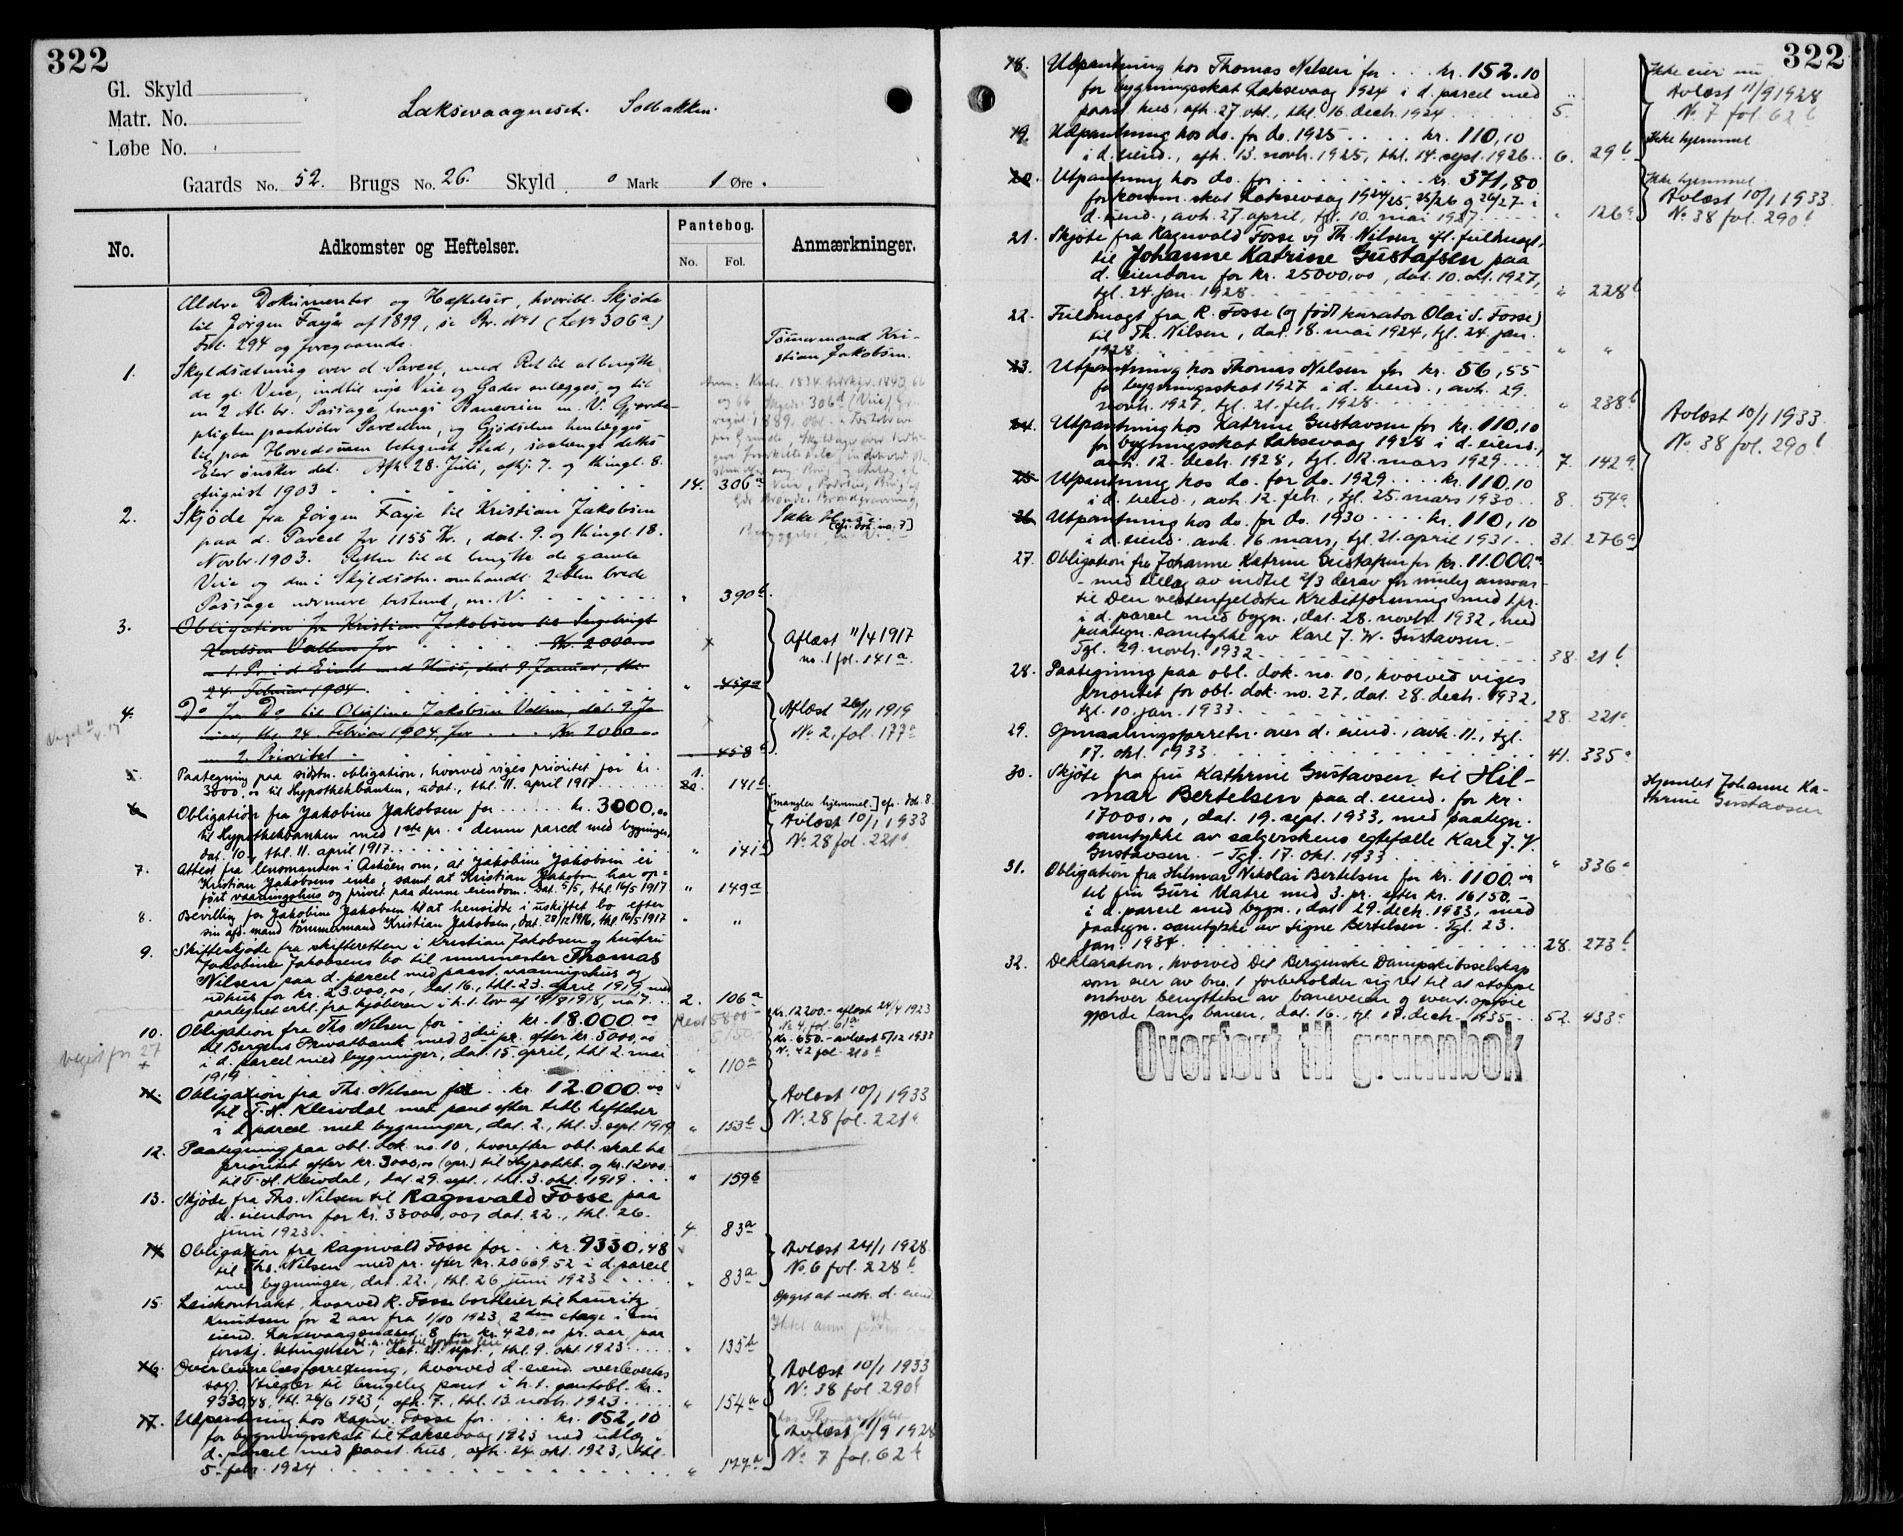 322
Gl. Skyld
Matr. No.
Løbe No.
Laksevaagneset. Solbakken.
Gaards No. 52. Brugs No. 26. Skyld 0 Mark 1 Øre.
No.
Adkomster og Heftelser.
Pantebog.
No. Fol.
Anmærkninger.
Ældre Dokumenter og Hæftelser, hvoribl. Skjøde
til Jörgen Faye af 1899, se Br. No 1 (L. No 306 a)
Fol. 294 og foregaaende.
Tömmermand Kri-
stian Jakobsen.
1. Skyldsætning over d. Parcel, med Ret til at benytte
de gl. Veie, indtil nye Veie og Gader anlægges, og til
en 2 Al. br. Passage langs Baneveien m. V. Gjerde-
pligten paahviler Parcelen, og Gjödselen henlægges
til paa Hovedbölet betegnet Sted, saalænge dettes
Eier ønsker det. Afh. 28. Juli, afhj. 7. og thingl. 8.
August 1903 14. 306 a
2. Skjöde fra Jörgen Faye til Kristian Jakobsen
paa d. Parcel for 1155 Kr., dat. 9. og thingl. 18.
Novbr. 1903. Retten til at benytte de gamle
Veie og den i Skyldsætn. omhandl. 2 Alen brede
Passage nærmere bestemt, m. V. " 390 b
[cfr. dok. no. 7]
3. Obligation fra Kristian Jakobsen til Ingebrigt
Karlsen Vallem for Kr. 2000 "
m. 1. Pr. i d. Eiend. med Huse, dat. 9. Januar, thl.
24. Februar 1904. " 458 a
Aflæst 11/4 1917
no. 1 fol. 141 a.
4. Do fra Do til Olufine Jakobsen Vallem, dat. 9. Ja-
nuar, thl. 24. Februar 1904, for Kr. 2000 "
m. 2. Prioritet " 458 b
Aflæst 26/11 1919
No 2, fol. 177 a
5. Paategning paa sidstn. obligation, hvorved viges prioritet for kr.
3000,00 til Hypothekbanken, udat., thl. 11. april 1917 1. 141 b
6. Obligation fra Jakobine Jakobsen for kr. 3000,00
til Hypothekbanken med 1ste pr. i denne parcel med bygninger,
dat. 10., thl. 11. april 1917 " 141 b
[mangler hjemmel.] cfr. dok. 8.
Avlæst 10/1 1933
No 28 fol. 221 a
7. Attest fra lensmanden i Askøen om, at Jakobine Jakobsen er
Kristian Jakobsens enke, samt at Kristian Jakobsen har op-
ført vaaningshus og privet paa denne eiendom. Dat. 5/5, thl. 16/5 1917 " 149 a
8. Bevilling for Jakobine Jakobsen til at hensidde i uskiftet bo efter
sin afd. mand tømmermand Kristian Jakobsen, dat. 28/12 1916, thl. 16/5 1917 " "
9. Skifteskjøde fra skifteretten i Kristian Jakobsen og hustru
Jakobine Jakobsens bo til murmester Thomas
Nilsen paa d. parcel med paast. vaaningshus og
udhus for kr. 23.000,00, dat. 16., thl. 23. april 1919, med
paategnet erkl. fra kjøberen i h. t. lov af 16/8 1918, no 7. 2. 106 a
10. Obligation fra Ths. Nilsen for kr. 18.000 "
til Bergens Privatbank med 3die pr. efter kr. 5000,00
i d. parcel med bygninger, dat. 15. april, thl. 2. mai
1919 " 110 a
Kr. 12200.- aflæst 24/4 1923
No 4, fol. 61 a
Kr. 650.- avlæst 5/12 1933
No 42 fol. 210 b
Veget for 27
11. Obligation fra Ths. Nilsen for kr. 12.000 "
til T. H. Kleivdal med pant efter tidl. heftelser
i d. parcel med bygninger, dat. 2., thl. 3. sept. 1919 " 153 b
Avlæst 10/1 1933
No 28 fol. 221 a
12. Paategning paa obl. dok. no. 10, hvorefter obl. skal ha
prioritet efter kr. 3000,00 (opr.) til Hypothekb. og kr. 12000.
til T. H. Kleivdal, dat. 29. sept., thl. 3. okt. 1919 " 159 b
13. Skjøde fra Ths. Nilsen til Ragnvald Fosse paa
d. eiendom for kr. 33000,00, dat. 22., thl. 26.
juni 1923 4. 83 a
14. Obligation fra Ragnvald Fosse for kr. 9330,48
til Ths. Nilsen med pr. efter kr. 20669,52 i d. parcel
med bygninger, dat. 22., thl. 26. juni 1923 " 83 a
Avlæst 24/1 1928
No. 6 fol. 228 b
15. Leiekontrakt, hvorved R. Fosse bortleier til Lauritz
Knudsen for 2 aar fra 1/10 1923, 2den etage i sin
eiend. Laksevaagneset 8 for kr. 420,00 pr. aar paa
forskj. betingelser, dat. 21. sept., thl. 9. okt. 1923 " 135 b
16. Overleverelsesforretning, hvorved d. eiend. overlevertes
sagf. Stiegler til brugelig pant i h. t. pantobl. kr.
9330,48, thl. 26/6 1923; afh. 7., thl. 13. novbr. 1923 " 154 a
Avlæst 10/1 1933
No. 38 fol. 290 b
17. Utpantning hos Ragnv. Fosse for kr. 152,10
for bygningsskat til Laksevaag 1923 med utlæg i
d. parcel med paast. hus, afh. 24. okt. 1923, thl.
5. febr. 1924 " 177 a
Avlæst 11/9 1928
No 7 fol. 62 b
322
18. Utpantning hos Thomas Nilsen for kr. 152,10
for bygningsskat Laksevaag 1924 i d. parcel med
paast. hus, afh. 27. okt., thl. 16. decb. 1924 5.
Ikke eier nu
Avlæst 11/9 1928
No. 7 fol. 62 b
19. Utpantning hos do. for do. 1925 kr. 110,10
i d. eiend., afh. 13. novb. 1925, thl. 14. sept. 1926 6. 29 b
Ikke hjemmel
20. Utpantning hos do. for kr. 371,80
for komm. skat Laksevaag 1924/25, 25/26 og 26/27 i
d. eiend., avh. 27. april, tgl. 10. mai 1927 " 126 a
Ikke hjemmel.
Avlæst 10/1 1933
No. 38 fol. 290 b
21. Skjøte fra Ragnvald Fosse v/ Th. Nilsen ifl. fuldmagt,
til Johanne Katrine Gustafsen paa
d. eiendom for kr. 25000,00, dat. 10. okt. 1927,
tgl. 24. jan. 1928 " 228 b
22. Fuldmagt fra R. Fosse (og født kurator Olai S. Fosse)
til Th. Nilsen, dat. 18. mai 1924, tgl. 24. jan.
1928 " "
23. Utpantning hos Thomas Nilsen for kr. 56,55
for bygningsskat 1927 i d. eiend., avh. 29.
novb. 1927, tgl. 21. feb. 1928 " 238 b
24. Utpantning hos Katrine Gustavsen for kr. 110,10
for bygningsskat Laksevaag 1928 i d. eiend.,
avh. 12. decb. 1928, tgl. 12. mars 1929 7. 142 a
Avlæst 10/1 1933.
No. 38 fol. 290 b
25. Utpantning hos do. for do. 1929 kr. 110,10
i d. eiend., avh. 12. feb., tgl. 25. mars 1930 8. 54 a
26. Utpantning hos do. for do. 1930 kr. 110,10
i d. eiend. avh. 16. mars, tgl. 21. april 1931 31. 276 a
27. Obligation fra Johanne Katrine Gustafsen for kr. 11.000.00
- med tillæg av indtil 2/3 derav for mulig ansvar -
til Den vestenfjeldske Kreditforening med 1. pr.
i d. parcel med bygn., dat. 28. novbr. 1932, med
paategn. samtykke av Karl J. W. Gustavsen. -
Tgl. 29. novb. 1932 38. 21 b
28. Paategning paa obl. dok. no. 10, hvorved viges
prioritet for obl. dok. no. 27, dat. 28. decb. 1932,
tgl. 10. jan. 1933 28. 221 a
29. Opmaalingsforretn. over d. eiend., avh. 11., tgl.
17. okt. 1933 41. 335 a
30. Skjøte fra fru Kathrine Gustavsen til Hil-
mar Bertelsen paa d. eiend. for kr.
17000,00, dat. 19. sept. 1933, med paategn.
samtykke av sælgerskens egtefælle Karl J. W.
Gustavsen. - Tgl. 17. okt. 1933 " 336 a
Hjemlet Johanne Ka-
thrine Gustavsen
31. Obligation fra Hilmar Nikolai Bertelsen for kr. 1100.00
til fru Guri Matre med 3. pr. efter kr. 16150.-
i d. parcel med bygn., dat. 29. decb. 1933, med
paategn. samtykke av Signe Bertelsen. Tgl. 23.
jan. 1934 28. 273 b
32. Deklaration, hvorved Det Bergenske Dampskibsselskap
som eier av bno. 1 forbeholder sig ret til at stoppe
enhver benyttelse av baneveien og event. opføre
gjerde langs banen, dat. 16., tgl. 17. decb. 1935 52. 433 a
Overført til grunnbok